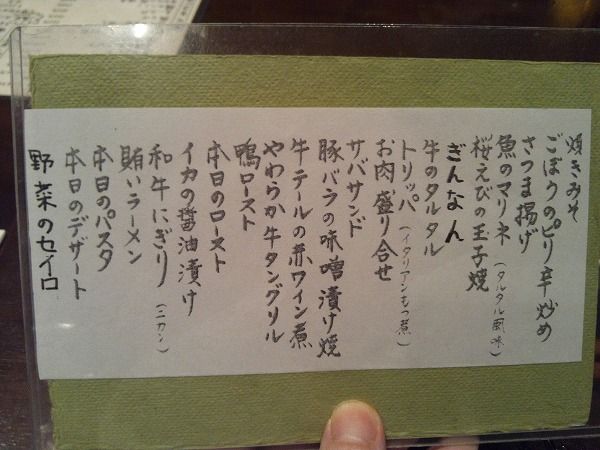 焼きみそ
ごぼうのピリ辛炒め
さつま揚げ
魚のマリネ(タルタル風味)
桜えびの玉子焼
ぎんなん
牛のタルタル
トリッパ(イタリアンもつ煮)
お肉盛り合せ
サバサンド
豚バラの味噌漬け焼
牛テールの赤ワイン煮
やわらか牛タングリル
鴨ロースト
本日のロースト
イカの醤油漬け
和牛にぎり(二カン)
賄いラーメン
本日のパスタ
本日のデザート
野菜のセイロ